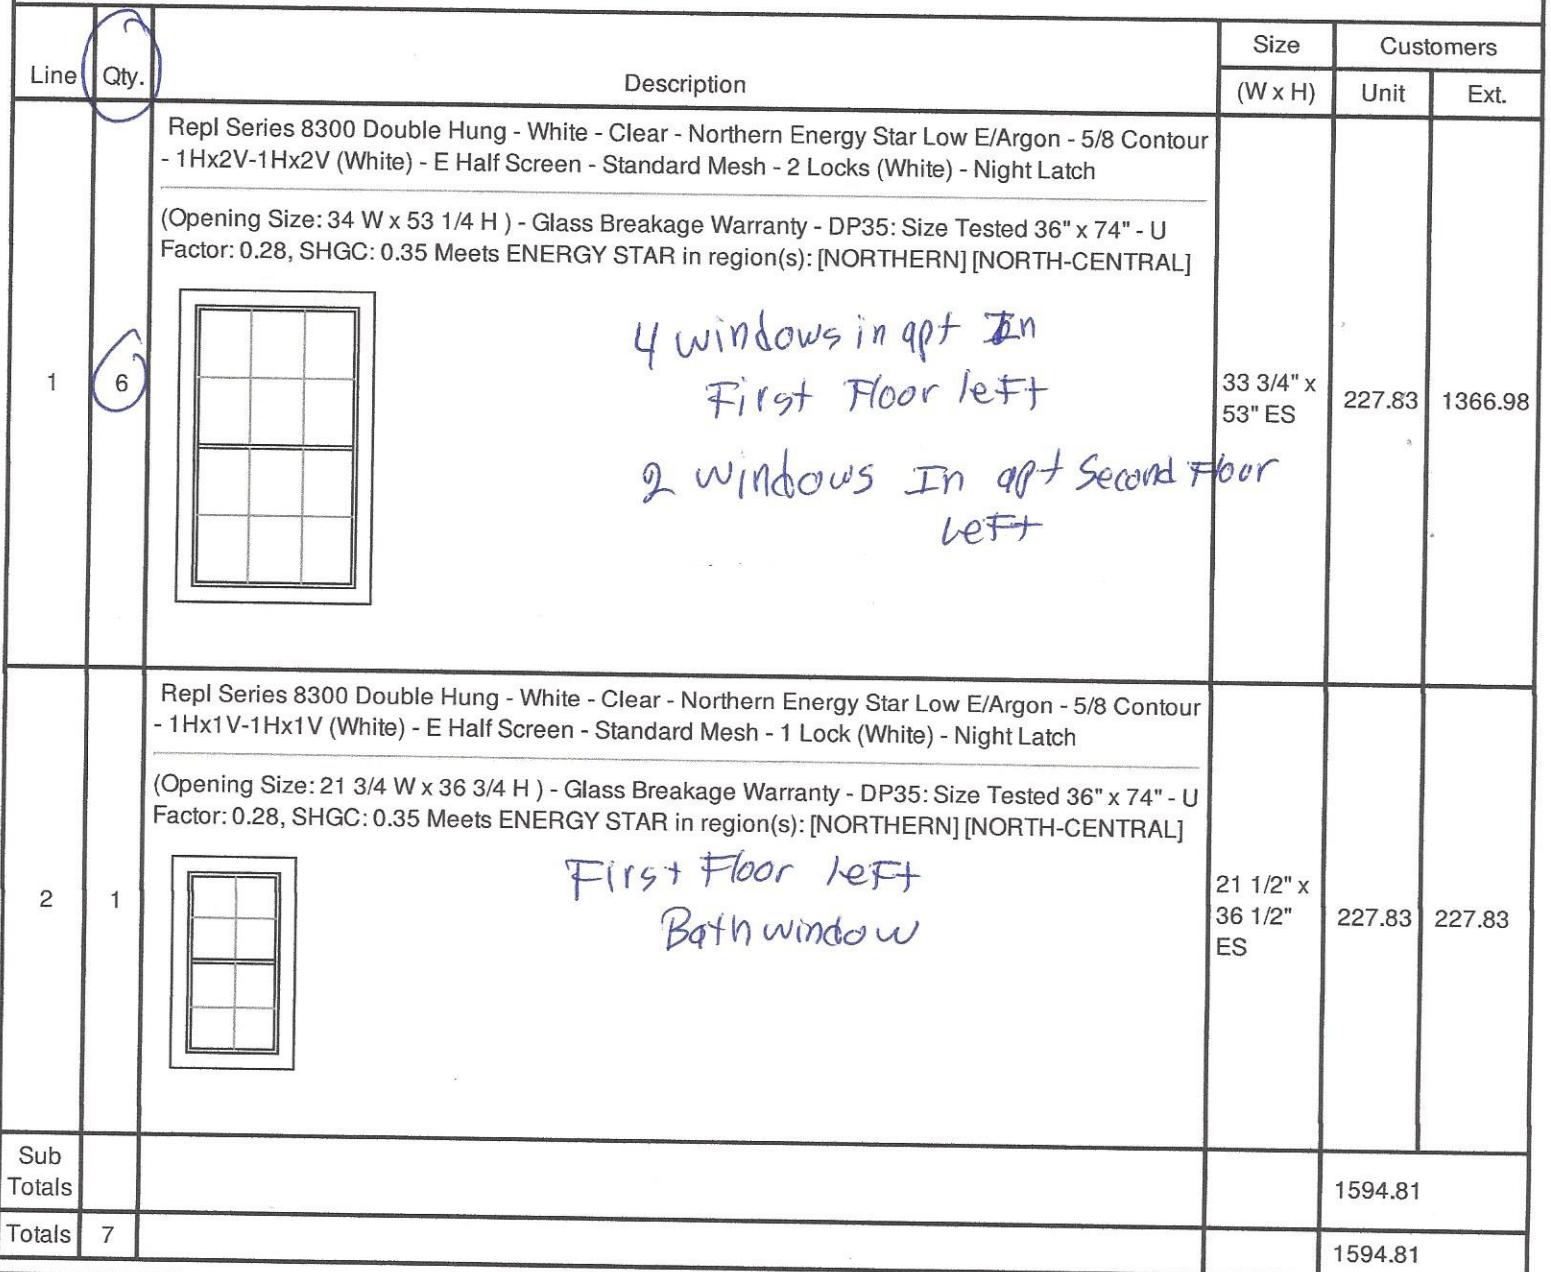 Line
Qty.
Description
Size
(W x H)
Customers
Unit
Ext.
1
6
Repl Series 8300 Double Hung - White - Clear - Northern Energy Star Low E/Argon - 5/8 Contour
- 1Hx2V-1Hx2V (White) - E Half Screen - Standard Mesh - 2 Locks (White) - Night Latch
(Opening Size: 34 W x 53 1/4 H ) - Glass Breakage Warranty - DP35: Size Tested 36" x 74" - U
Factor: 0.28, SHGC: 0.35 Meets ENERGY STAR in region(s): [NORTHERN] [NORTH-CENTRAL]
4 windows in apt In
First Floor left
2 windows In apt Second Floor
Left
33 3/4" x
53" ES
227.83
1366.98
2
1
Repl Series 8300 Double Hung - White - Clear - Northern Energy Star Low E/Argon - 5/8 Contour
- 1Hx1V-1Hx1V (White) - E Half Screen - Standard Mesh - 1 Lock (White) - Night Latch
(Opening Size: 21 3/4 W x 36 3/4 H ) - Glass Breakage Warranty - DP35: Size Tested 36" x 74" - U
Factor: 0.28, SHGC: 0.35 Meets ENERGY STAR in region(s): [NORTHERN] [NORTH-CENTRAL]
First Floor left
Bath window
21 1/2" x
36 1/2"
ES
227.83
227.83
Sub
Totals
1594.81
Totals
7
1594.81